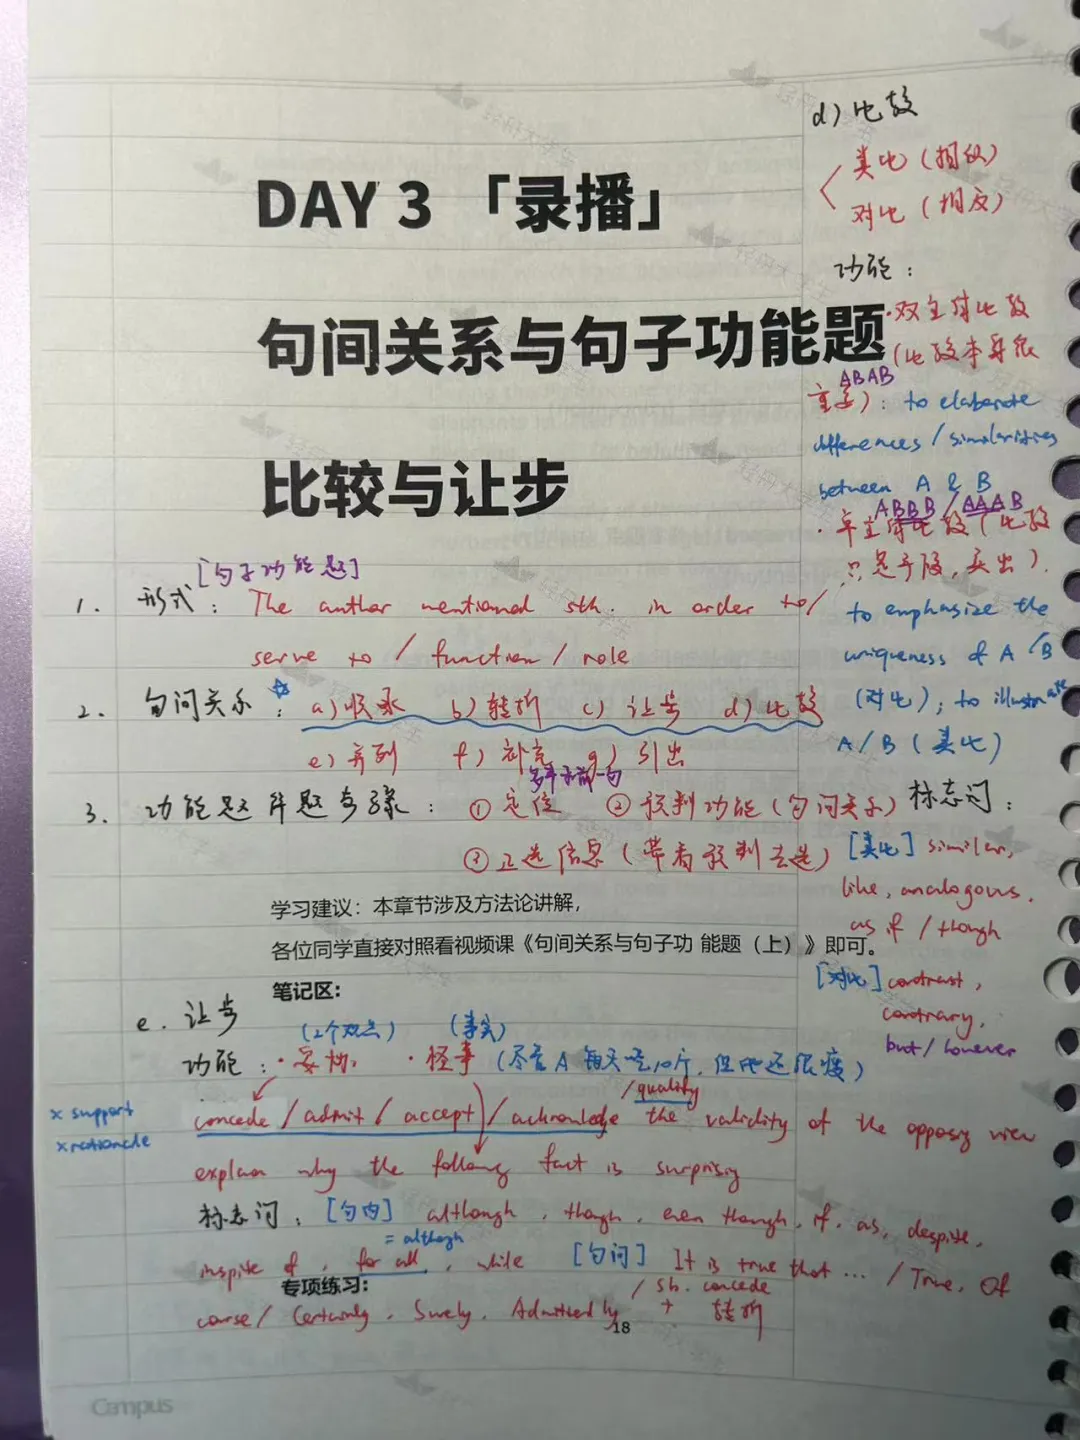 DAY 3 「录播」
句间关系与句子功能题
比较与让步
[句子功能题]
1. 形式: The author mentioned sth. in order to /
serve to / function / role
2. 句间关系: a) 顺承 b) 转折 c) 让步 d) 比较
e) 并列 f) 补充 g) 引出
多半求前一句
3. 功能题解题步骤: ① 定位 ② 预判功能(句间关系)
③ 正选信息(带着预判去选)
学习建议:本章节涉及方法论讲解,
各位同学直接对照看视频课《句间关系与句子功 能题(上)》即可。
笔记区:
e. 让步
(2个观点) (事实)
功能: · 妥协, · 怪事 (尽管A每天吃10斤, 但他还很瘦)
/quality
x support
x rationale
concede / admit / accept / acknowledge the validity of the opposing view
explain why the following fact is surprising
标志词: [句内] although, though, even though, if, as, despite,
= although
inspite of, for all, while [句间] It is true that ... / True, Of
专项练习:
/ sb. concede
course / Certainly, Surely, Admittedly + 转折
18
Campus
d) 比较
类比 (相似)
对比 (相反)
功能:
· 双主体比较
(比较本身很
ABAB
重要): to elaborate
differences / similarities
between A & B
ABBB / AAAB
· 单主体比较 (比较
只是手段, 突出).
to emphasize the
uniqueness of A / B
(对比); to illustrate
A / B (类比)
标志词:
[类比] similar,
like, analogous,
as if / though
[对比] contrast,
contrary,
but / however